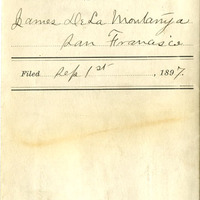 James De La Montanya
San Francisco
Filed Sep 1st, 1897.